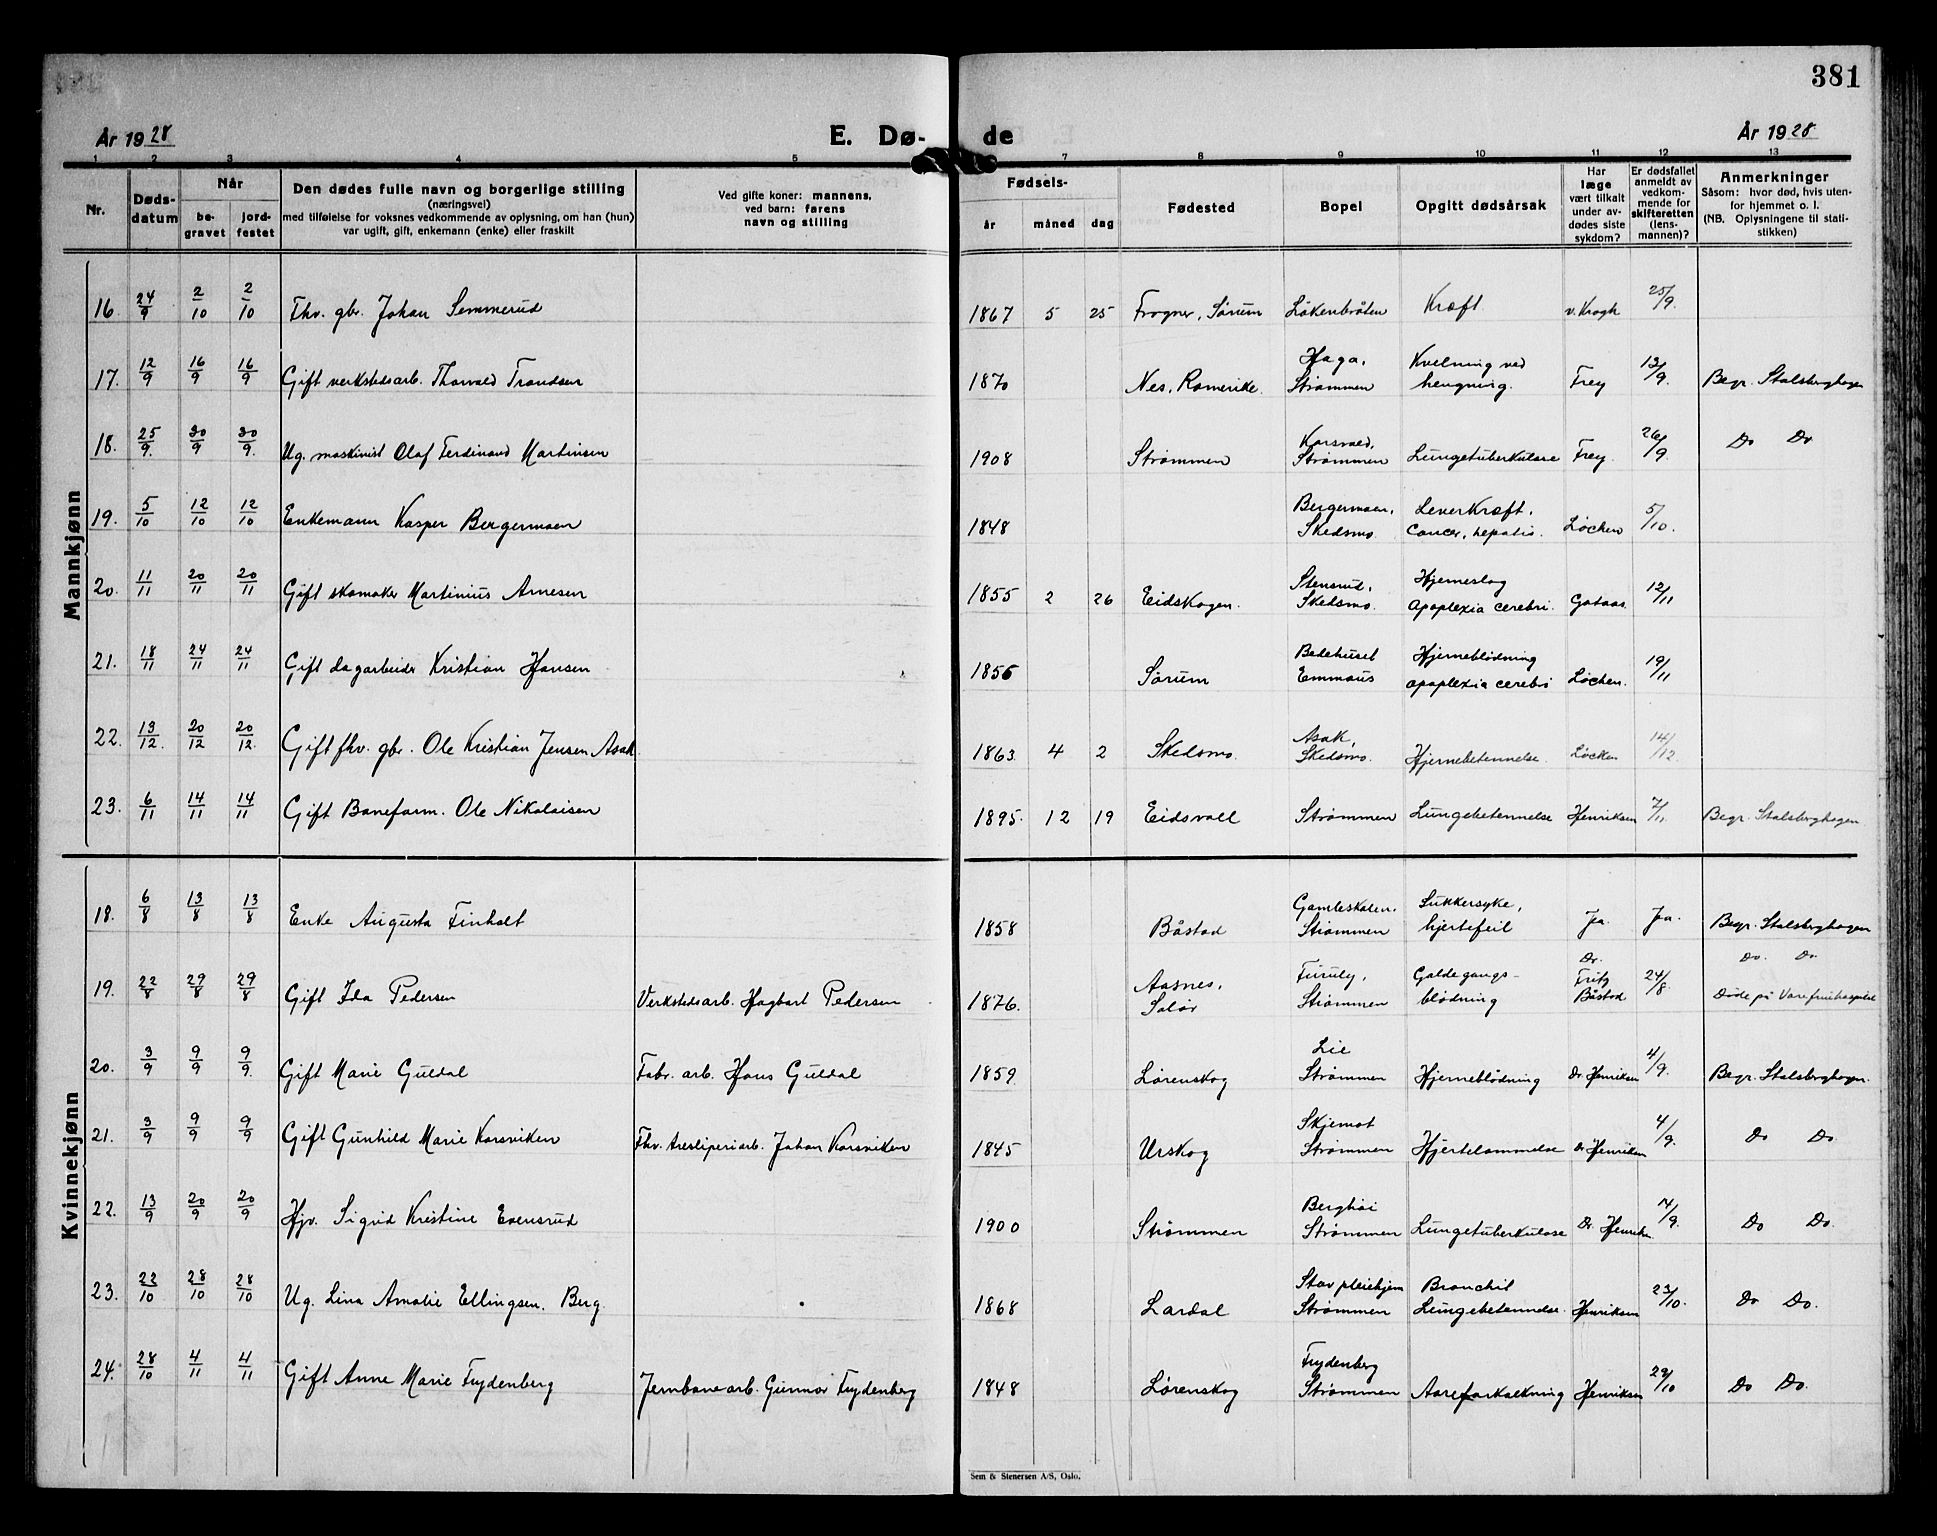 381
År 1928
E. Dø-
de
År 1928
1 2 3 4 5 7 8 9 10 11 12 13
Nr.
Døds-
datum
Når
be-
gravet
jord-
festet
Den dødes fulle navn og borgerlige stilling
(næringsvei)
med tilføielse for voksnes vedkommende av oplysning, om han (hun)
var ugift, gift, enkemann (enke) eller fraskilt
Ved gifte koner: mannens,
ved barn: farens
navn og stilling
Fødsels-
år
måned
dag
Fødested
Bopel
Opgitt dødsårsak
Har
læge
vært tilkalt
under av-
dødes siste
sykdom?
Er dødsfallet
anmeldt av
vedkom-
mende for
skifteretten
(lens-
mannen)?
Anmerkninger
Såsom: hvor død, hvis uten-
for hjemmet o. l.
(NB. Oplysningene til stati-
stikken)
Mannkjønn
16. 24/9 2/10 2/10 Fhv. gbr. Johan Semmerud 1867 5 25 Frogner, Sørum Løkenbråten Kræft v. Krogh 25/9.
17. 12/9 16/9 16/9 Gift verkstedsarb. Thorvald Trondsen 1870 Nes, Romerike. Haga, Strømmen Kvelning ved hengning. Frey 13/9. Begr. Stalsberghagen
18. 25/9. 30/9 30/9. Ug. maskinist Olaf Ferdinand Martinsen 1908 Strømmen Korsvold, Strømmen Lungetuberkulose Frey. 26/9. Do Do
19. 5/10 12/10 12/10 Enkemann Kasper Bergermoen 1848 Bergermoen, Skedsmo Leverkræft. Cancer, hepatis. Løchen 5/10.
20. 11/11 20/11 20/11 Gift skomaker Martinius Arnesen 1855 2 26 Eidskogen. Stensrud, Skedsmo. Hjerneslag apoplexia cerebri. Gotaas. 12/11
21. 18/11 24/11 24/11 Gift dagarbeider Kristian Hansen 1856 Sørum Bedehuset Emmaus Hjerneblødning apoplexia cerebri Løchen. 19/11
22. 13/12. 20/12 20/12. Gift fhv. gbr. Ole Kristian Jensen Asak 1863 4 2 Skedsmo. Asak, Skedsmo. Hjernebetennelse. Løchen 14/12.
23. 6/11 14/11 14/11 Gift Baneform. Ole Nikolaisen 1895. 12 19 Eidsvoll Strømmen Lungebetennelse Henriksen 7/11. Begr. Stalsberghagen
Kvinnekjønn
18. 6/8 13/8 13/8 Enke Augusta Finholt 1858 Båstad Gamleskolen. Strømmen Sukkersyke, hjertefeil Ja. Ja. Begr. Stalsberghagen
19. 22/8 29/8 29/8 Gift Ida Pedersen Verkstedsarb. Hagbart Pedersen 1876. Aasnes, Solør Furuly, Strømmen Galdegangs- blødning Dr. Fritz Båstad 24/8. Do. Do Døde på Varefruehospital
20. 3/9 9/9 9/9. Gift Marie Guldal Fabr. arb. Hans Guldal 1859 Lørenskog Lie Strømmen Hjerneblødning Dr Henriksen 4/9. Begr. Stalsberghagen.
21. 3/9 9/9 9/9 Gift Gunhild Marie Korsviken Fhv. tresliperiarb. Johan Korsviken 1845 Urskog Skjemot Strømmen Hjertelammelse Dr Henriksen 4/9. Do Do.
22. 13/9 20/9 20/9 Hjv. Sigrid Kristine Evensrud 1900 Strømmen Berghøi Strømmen Lungetuberkulose Dr. Henriksen 14/9. Do Do.
23. 22/10 28/10 28/10 Ug. Lina Amalie Ellingsen. Berg. 1868 Lardal Stav pleiehjem Strømmen Bronchit Lungebetennelse. Henriksen 23/10. Do Do.
24. 28/10 4/11 4/11 Gift Anne Marie Frydenberg Jernbanearb. Gunnar Frydenberg 1848 Lørenskog Frydenberg Strømmen Aareforkalkning Henriksen 29/10 Do Do.
Sem & Stenersen A/S, Oslo.